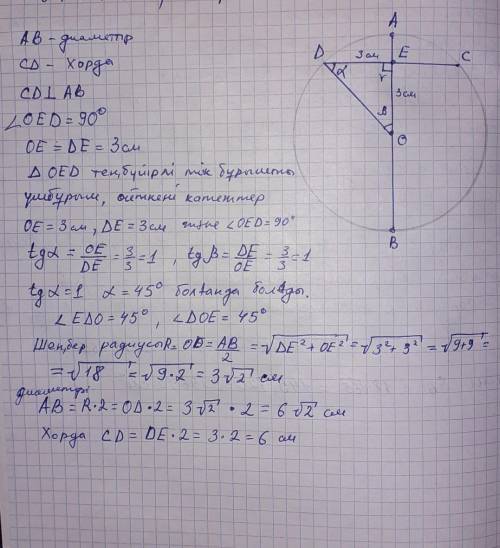 AB - диаметр
CD - Хорда
CD⊥AB
∠OED = 90°
OE = DE = 3 см
△ OED тең бүйірлі тік бұрышты
үшбұрыш, өйткені катеттер
OE = 3 см, DE = 3 см және ∠OED = 90°
tgα = OE/DE = 3/3 = 1, tgβ = DE/OE = 3/3 = 1
tgα = 1 α = 45° болғанда болады.
∠EDO = 45°, ∠DOE = 45°
Шеңбер радиусы R = OD = AB/2 = √DE² + OE² = √3² + 3² = √9+9 =
= √18 = √9·2 = 3√2 см
диаметры
AB = R·2 = OD·2 = 3√2 · 2 = 6√2 см
Хорда CD = DE·2 = 3·2 = 6 см
A
D 3 см E C
α r
3 см
β
O
B